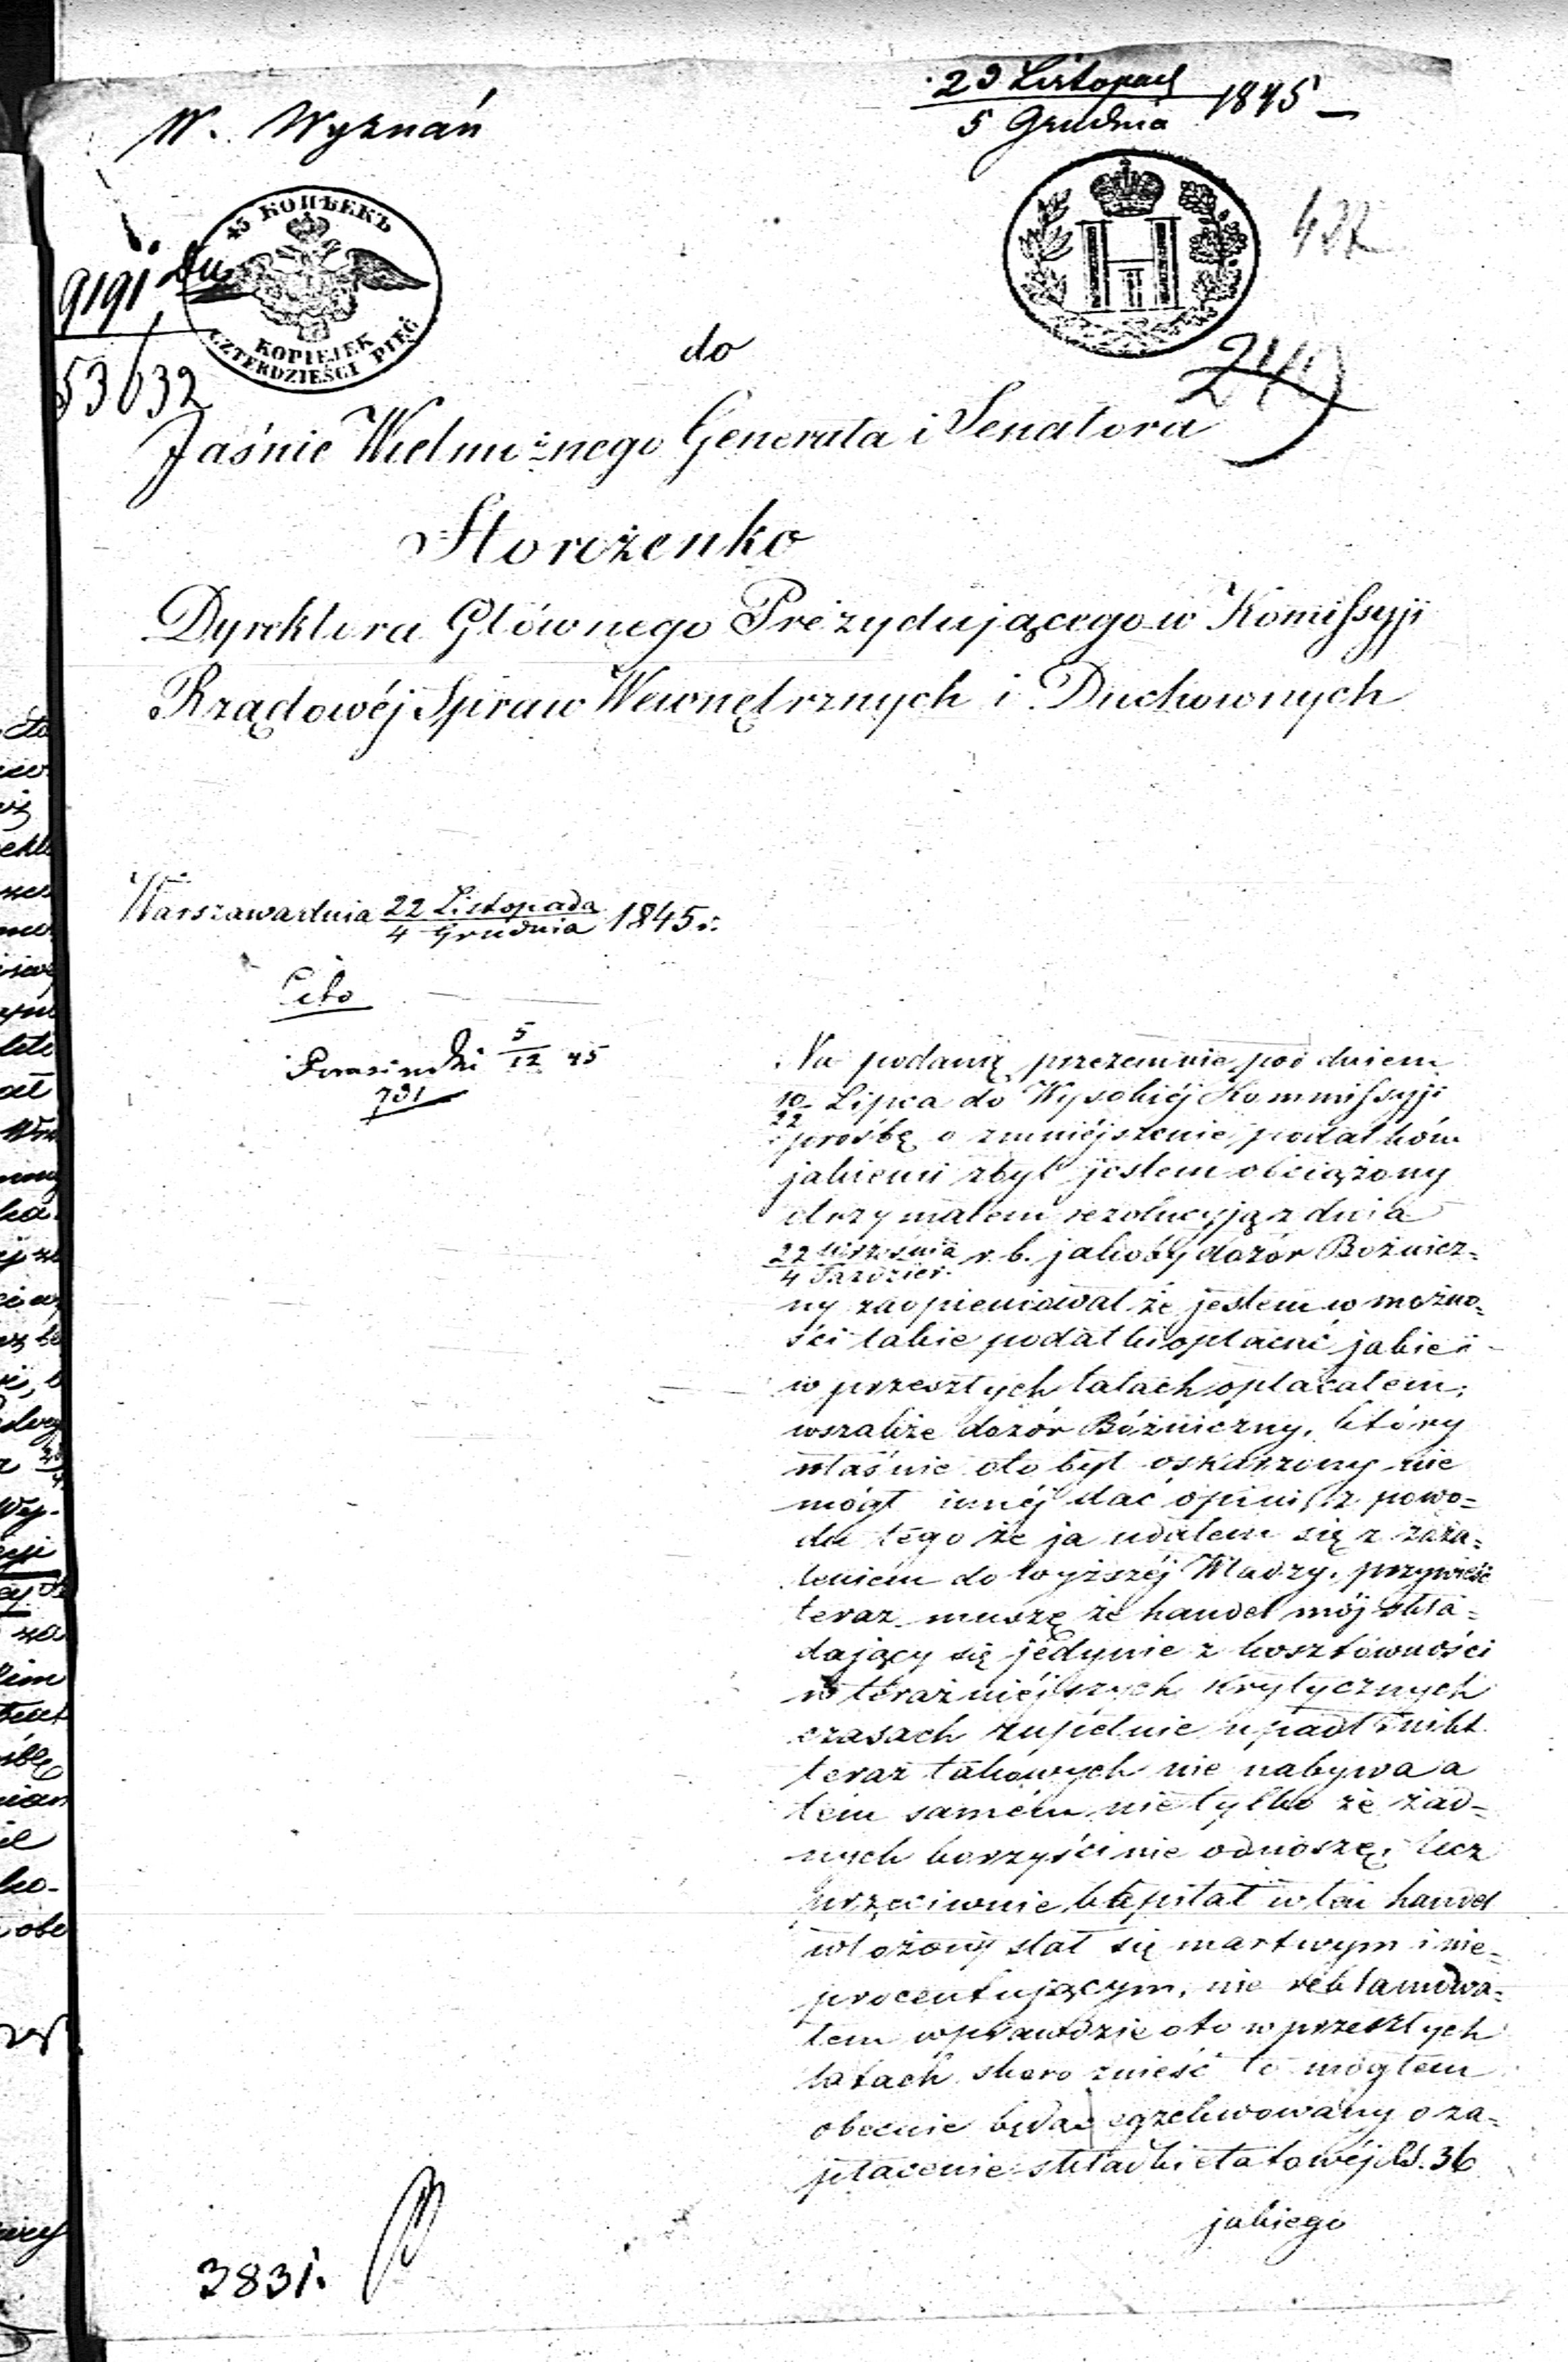 W. Wyznań
23 Listopad
5 Grudnia 1845
45 КОПѢЕКЪ
KOPIEJEK
CZTERDZIEŚCI PIĘĆ
Н
9191
53632
do
Jaśnie Wielmożnego Generała i Senatora
Storożenko
Dyrektora Głównego Prezydującego w Komissyji
Rządowéj Spraw Wewnętrznych i Duchownych
Warszawa dnia 22 Listopada
4 Grudnia 1845 r.
Cito
5
12 45
731
Na podaną przezemnie pod dniem
10
22 Lipca do Wysokiéj Kommissyji
prośbę o zmniéjszenie podatków
jakiemi zbyt jestem obciążony
otrzymałem rezolucyją z dnia
22 Września
4 Paździer. r. b. jakoby dozór Bóżnicz=
ny zaopieniował że jestem w możno=
ści takie podatki opłacać jakie i
w przeszłych latach opłacałem;
wszakże dozór Bóżniczny, który
właśnie oto był oskarzony nie
mógł innéj dać opinii z powo=
du tego że ja udałem się z zaża=
leniem do wyższéj Władzy. przywieść
teraz muszę że handel mój skła=
dający się jedynie z kosztowności
w teraźniéjszych krytycznych
czasach zupełnie upadł i nikt
teraz takowych nie nabywa a
tém samém nie tylko że żad=
nych korzyści nie odnoszę, lecz
przeciwnie kapitał w ten handel
włożony stał się martwym i nie=
procentującym, nie reklamowa=
łem wprawdzie oto w przeszłych
latach skoro znieść to mogłem
obecnie będąc egzekwowany o za=
płacenie składki etatowéj Rs. 36
jakiego
3831.